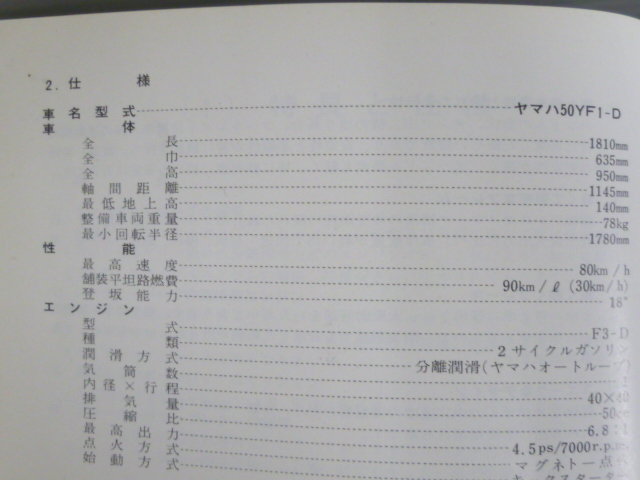 2. 仕様
車名型式 ヤマハ50YF1-D
車体
全長 1810mm
全巾 635mm
全高 950mm
軸間距離 1145mm
最低地上高 140mm
整備車両重量 78kg
最小回転半径 1780mm
性能
最高速度 80km/h
舗装平坦路燃費 90km/ℓ (30km/h)
登坂能力 18°
エンジン
型式 F3-D
種類 2サイクルガソリン
潤滑方式 分離潤滑(ヤマハオートルーブ)
気筒数
内径×行程 40×40
排気量 50cc
圧縮比 6.8:1
最高出力 4.5ps/7000r.p.m
点火方式 マグネトー点
始動方式 キックスター